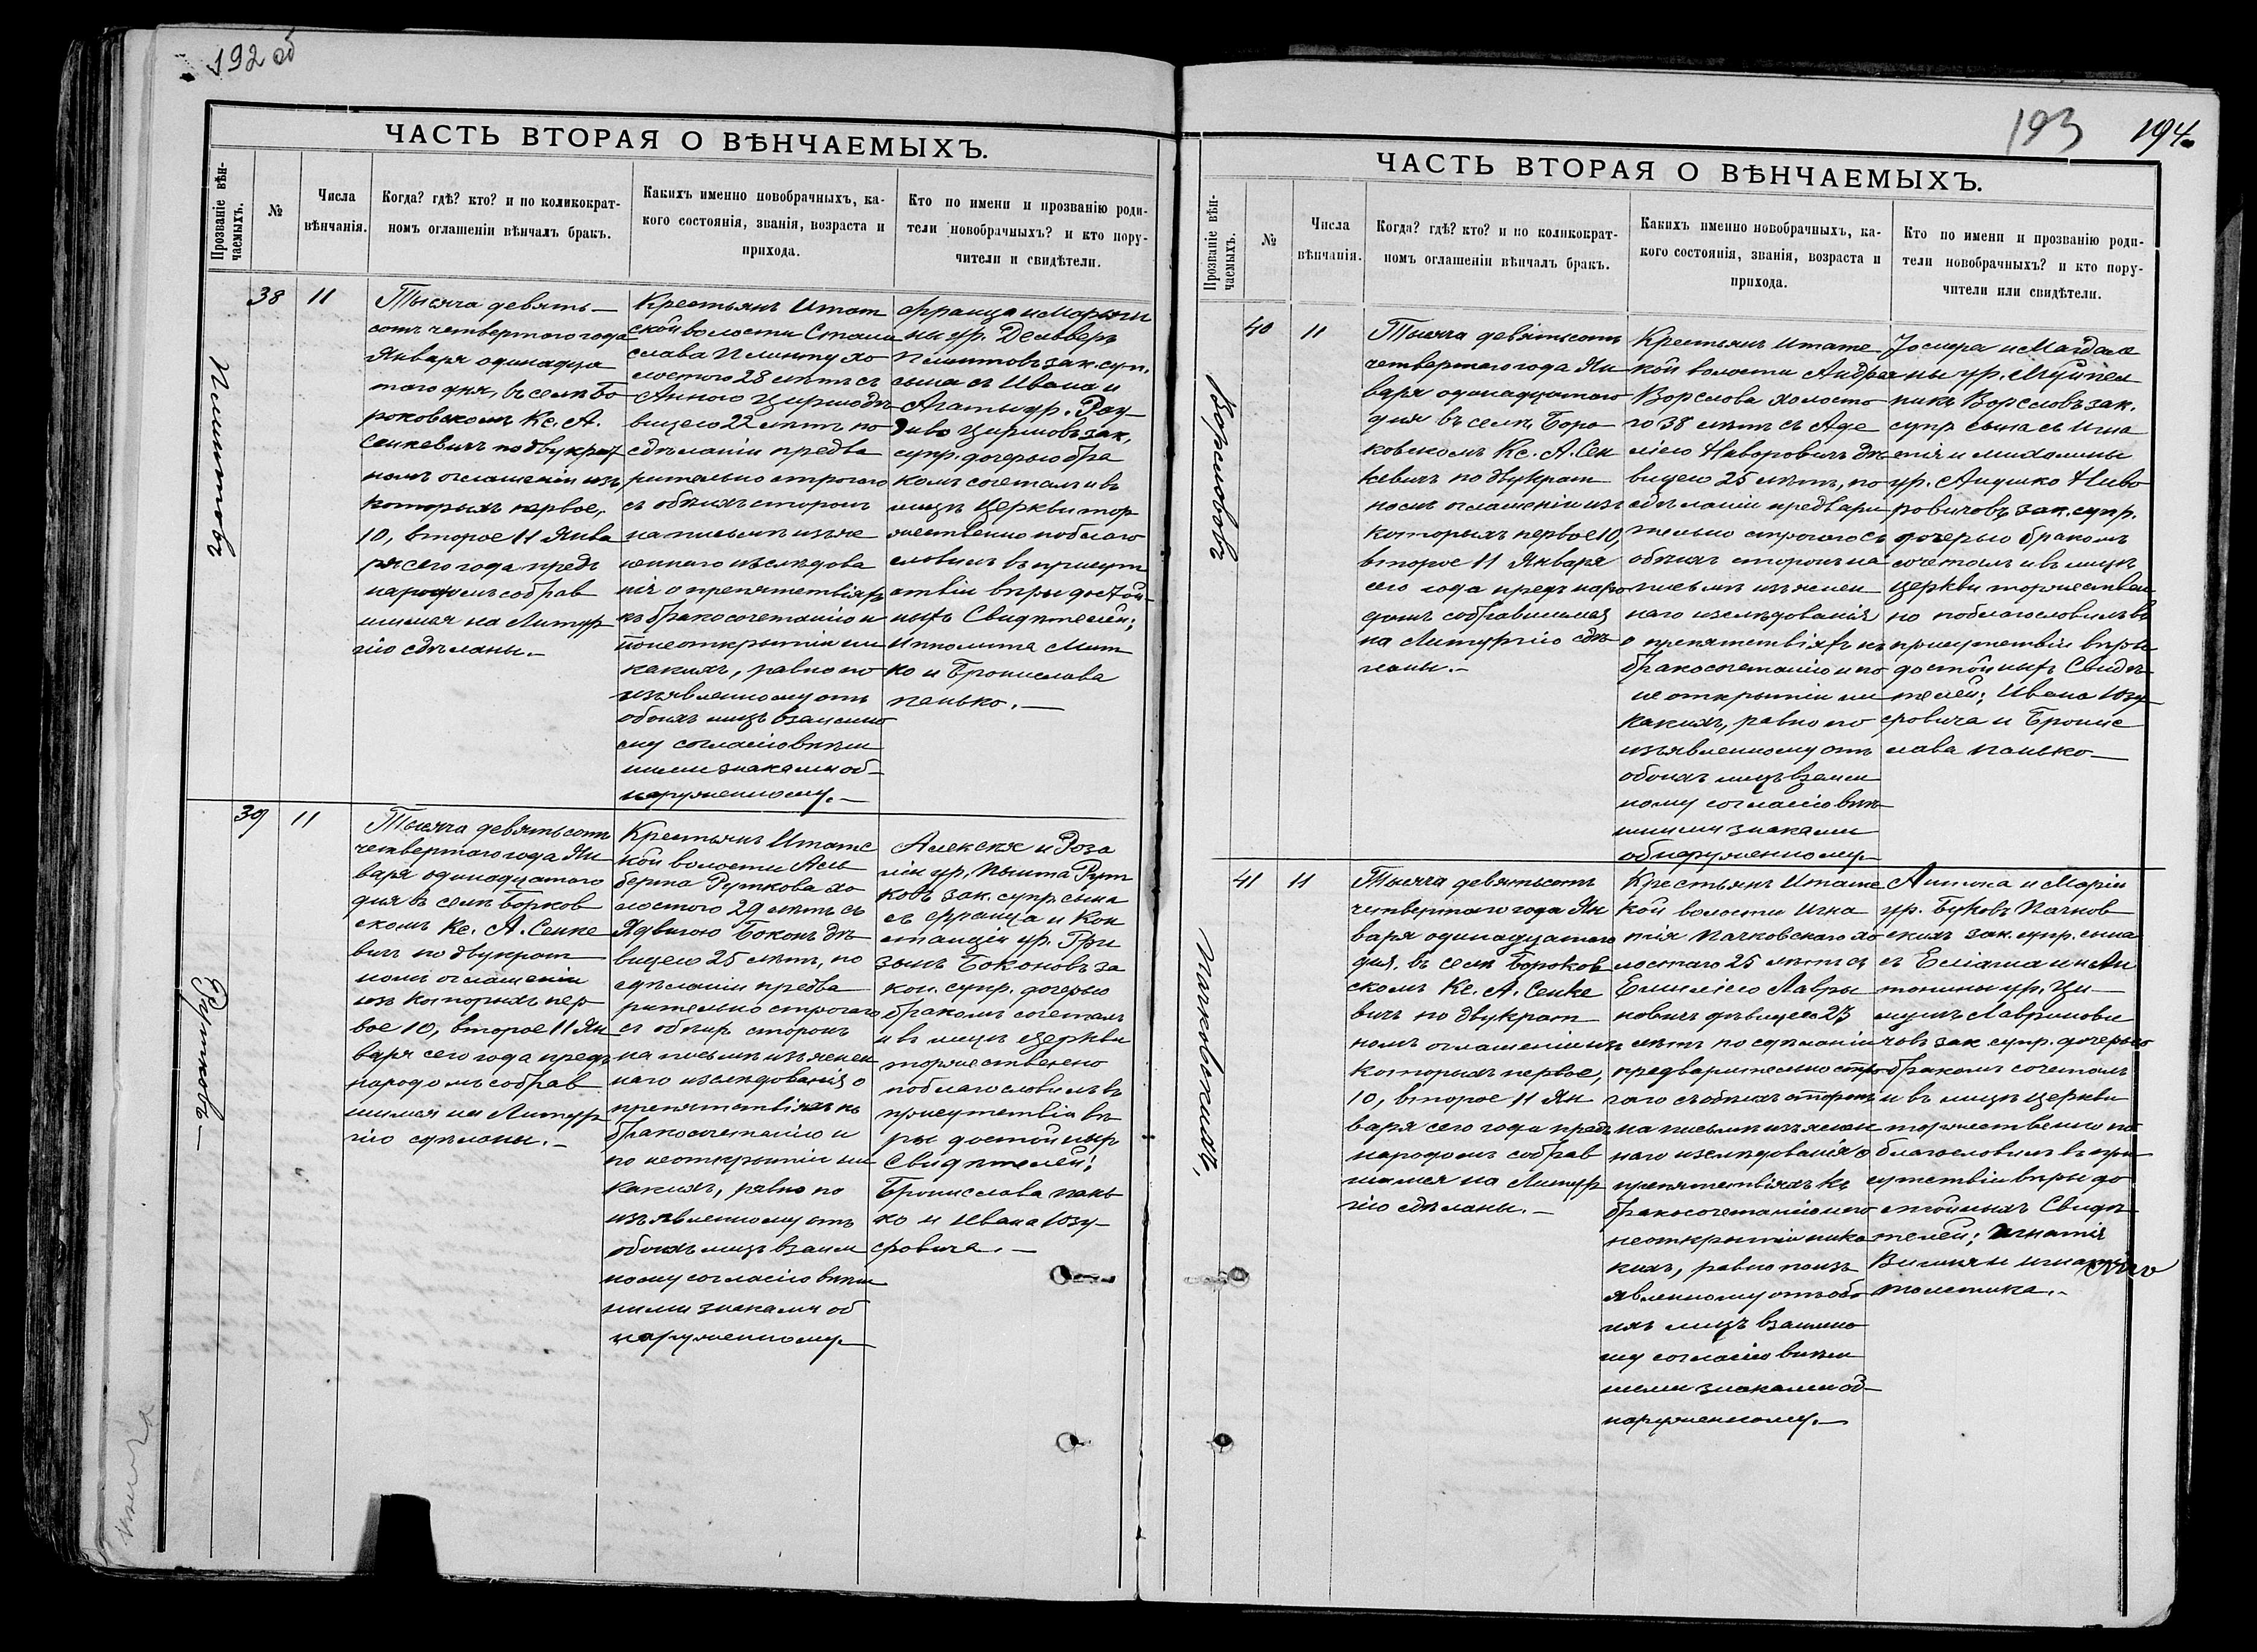 192 об
ЧАСТЬ ВТОРАЯ О ВѢНЧАЕМЫХЪ.
Прозваніе вѣн-
чаемыхъ.
№
Числа
вѣнчанія.
Когда? гдѣ? кто? и по коликократ-
номъ оглашеніи вѣнчалъ бракъ.
Какихъ именно новобрачныхъ, ка-
кого состоянія, званія, возраста и
прихода.
Кто по имени и прозванію роди-
тели новобрачныхъ? и кто пору-
чители и свидѣтели.
38
11
Тысяча девять-
сотъ четвертого года
Января одинадца
того дня, въ селѣ Бо
роковскомъ Кс. А.
Сенкевичъ по двукрат
номъ оглашеніи изъ
которыхъ первое,
10, второе 11 Янва
ря сего года предъ
народомъ собрав
шимся на Литур
гію сдѣланы.-
Крестьянъ Итат
ской волости Стани
слава Плинту хо
лостого 28 лѣтъ съ
Анною Цирмо дѣ
вицею 22 лѣтъ по
сдѣланіи предва
рительно строгаго
съ обѣихъ сторонъ
на письмѣ изъяс
неннаго изслѣдова
нія о препятствіяхъ
къ бракосочетанію и
по неоткрытіи ни
какихъ, равно по
изъявленному отъ
обоихъ лицъ взаимно
му согласію внѣш
ними знаками об-
наруженному.-
Франца и Маріи
ны ур. Дельверъ
Плинтовъ зак. суп.
сына съ Ивана и
Агаты ур.
Цирмовъ зак,
супр. дочерью бра
комъ сочеталъ и въ
лицѣ Церкви тор
жественно поблаго
словилъ въ присут
ствіи вѣры достой-
ныхъ Свидѣтелей;
Ипполита Мит
ко и Бронислава
Панько.-
Плинтовъ
39
11
Тысяча девятьсотъ
четвертого года Ян
варя одинадцатого
дня въ селѣ Борков
скомъ Кс. А. Сенке
вичъ по двукрат
номъ оглашеніи
изъ которыхъ пер
вое 10, второе 11 Ян
варя сего года предъ
народомъ собрав
шимся на Литур
гію сдѣланы.-
Крестьянъ Итатс
кой волости Аль
берта Руткова хо
лостого 29 лѣтъ съ
Ядвигою Боконъ дѣ
вицею 25 лѣтъ, по
сдѣланіи предва
рительно строгаго
съ обѣихъ сторонъ
на письмѣ изъяснен
наго изслѣдованія о
препятствіяхъ къ
бракосочетанію и
по неоткрытіи ни
какихъ, равно по
изъявленному отъ
обоихъ лицъ взаим
ному согласію внѣш
ними знаками об
наруженному-
Алексѣя и Роза
ліи ур. Пышта Рут
ковъ зак. супр сына
съ Франца и Кон
станціи ур. Гри
занъ Боконовъ за
кон. супр. дочерью
бракомъ сочеталъ
и въ лицѣ Церкви
торжественно
поблагословилъ въ
присутствіи вѣ-
ры достойныхъ
Свидѣтелей;
Бронислава Пань
ко и Ивана Юзу-
фовича.-
Рутковъ-
193 194.
ЧАСТЬ ВТОРАЯ О ВѢНЧАЕМЫХЪ.
Прозваніе вѣн-
чаемыхъ.
№
Числа
вѣнчанія.
Когда? гдѣ? кто? и по коликократ-
номъ оглашеніи вѣнчалъ бракъ.
Какихъ именно новобрачныхъ, ка-
кого состоянія, званія, возраста и
прихода.
Кто по имени и прозванію роди-
тели новобрачныхъ? и кто пору-
чители или свидѣтели.
40
11
Тысяча девятьсотъ
четвертого года Ян
варя одинадцатого
дня въ селѣ Боро
ковскомъ Кс. А. Сен
кевичъ по двукрат
номъ оглашеніи изъ
которыхъ первое 10,
второе 11 Января
сего года предъ наро
домъ собравшимся
на Литургію сдѣ-
ланы.-
Крестьянъ Итатс
кой волости Андрея
Ворслова холосто
го 38 лѣтъ съ Аде
лією Ниворовичъ дѣ
вицею 25 лѣтъ, по
сдѣланіи предвари
тельно строгаго съ
обѣихъ сторонъ на
письмѣ изъяснен
наго изслѣдованія
о препятствіяхъ къ
бракосочетанію и по
не открытіи ни
какихъ, равно по
изъявленному отъ
обоихъ лицъ взаим
ному согласію внѣ-
шними знаками
обнаруженному-
Іосифа и Магдале
ны ур.
Ворсловъ зак.
супр сына съ Игна
тія и Михалины
ур. Анушко Ниво
ровичовъ зак. супр.
дочерью бракомъ
сочеталъ и въ лицѣ
Церкви торжествен
но поблагословилъ въ
присутствіи вѣры
достойныхъ Свидѣ-
телей; Ивана Юзу-
фовича и Бронис
лава Панько-
Ворсловъ
41
11
Тысяча девятьсотъ
четвертаго года Ян
варя одинадцатого
дня, въ селѣ Бороков
скомъ Кс. А. Сенке
вичъ по двукрат
номъ оглашеніи изъ
которыхъ первое,
10, второе 11 Ян
варя сего года предъ
народомъ собрав
шимся на Литур
гію сдѣланы.-
Крестьянъ Итатс
кой волости Игна
тія Пачковскаго хо
лостаго 25 лѣтъ съ
Емилією Лаври
новичъ дѣвицею 23
лѣтъ по сдѣланіи
предварительно стро
гаго съ обѣихъ сторонъ
на письмѣ изъяснен
наго изслѣдованія о
препятствіяхъ къ
бракосочетанію и по
неоткрытіи ника
кихъ, равно по изъ
явленному отъ обо
ихъ лицъ взаимно
му согласію внѣш
ними знаками об-
наруженному.-
Антона и Маріи
ур. Буковъ Пачков
скихъ зак. супр. сына
съ и Ан
тонины ур. Ци-
Лавринови
човъ зак супр. дочерью
бракомъ сочеталъ
и въ лицѣ Церкви
торжественно по
благословилъ въ при
сутствіи вѣры до
стойныхъ Свидѣ-
телей; Игнатія
и Игнатія
Пачковскихъ,